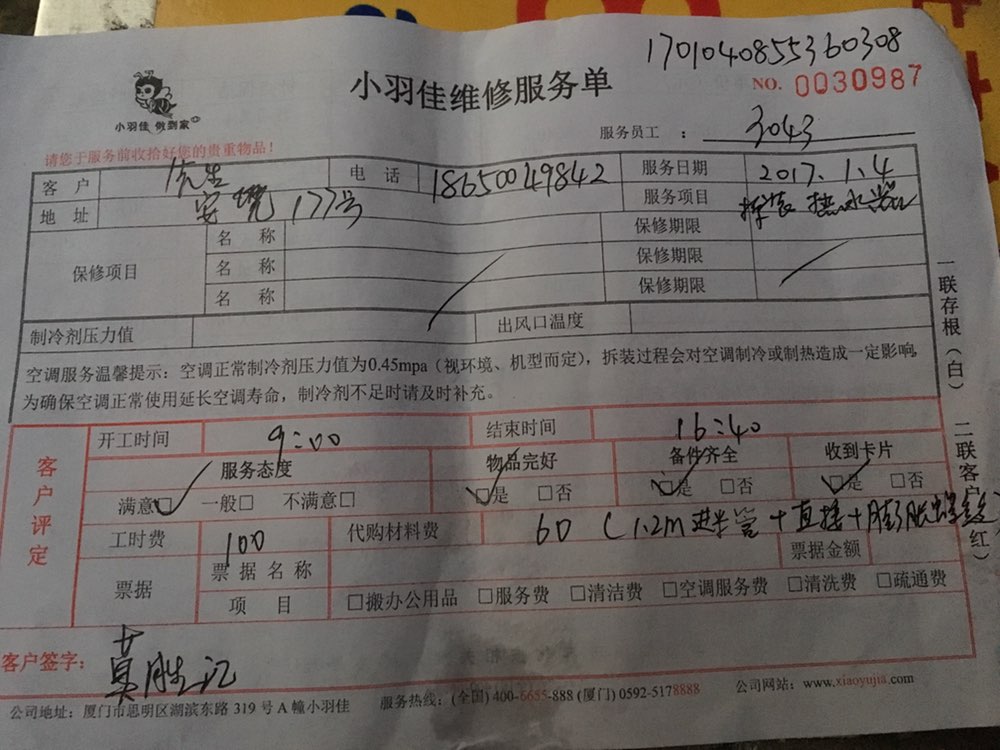 1701040855360308
小羽佳维修服务单
NO. 0030987
小羽佳 做到家
服务员工 : 3043
请您于服务前收拾好您的贵重物品!
客户 先生 电话 18650049842 服务日期 2017.1.4
地址 安兜177号 服务项目 拆装 热水器
保修项目 名称 保修期限
名称 保修期限
名称 保修期限
制冷剂压力值 出风口温度
空调服务温馨提示:空调正常制冷剂压力值为0.45mpa(视环境、机型而定),拆装过程会对空调制冷或制热造成一定影响,
为确保空调正常使用延长空调寿命,制冷剂不足时请及时补充。
一联存根(白) 二联客户(红)
客户评定
开工时间 9:00 结束时间 16:40
服务态度 物品完好 备件齐全 收到卡片
满意□ 一般□ 不满意□ □是 □否 □是 □否 □是 □否
工时费 100 代购材料费 60 (1.2m进半管+直接+膨胀
票据 票据名称 票据金额
项目 □搬办公用品 □服务费 □清洁费 □空调服务费 □清洗费 □疏通费
客户签字:
公司地址:厦门市思明区湖滨东路 319 号 A 幢小羽佳 服务热线:(全国) 400-6655-888 (厦门) 0592-5178888 公司网站:www.xiaoyujia.com